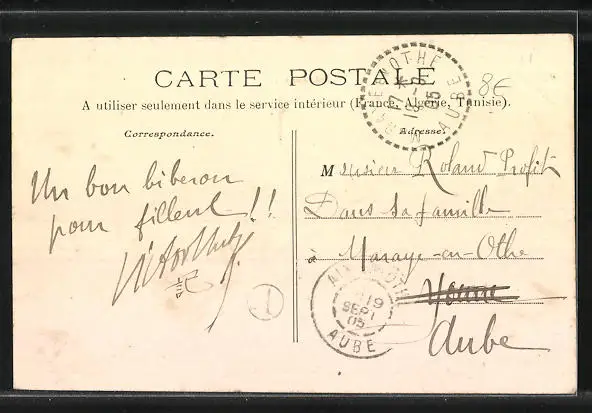 CARTE POSTALE
A utiliser seulement dans le service intérieur (France, Algérie, Tunisie).
8€
Correspondance.
Adresse.
Un bon biberon
pour filleul !!
Monsieur Roland Profit
Dans sa famille
à Maraye-en-Othe
Yonne
Aube
OTHE
AUBE
05
AIX OTHE
19
SEPT
05
AUBE
1